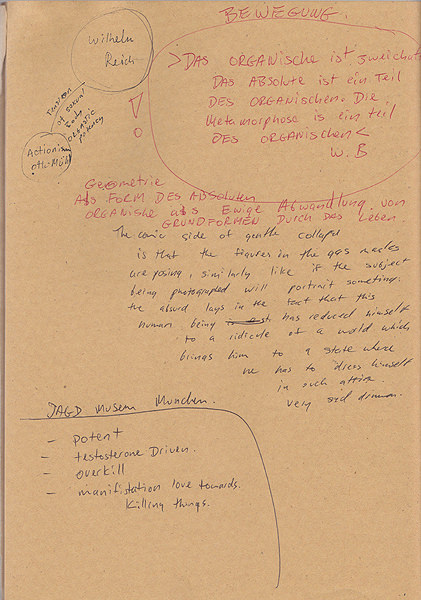 BEWEGUNG.
Wilhelm
Reich
>DAS ORGANISCHE IST
DAS ABSOLUTE IST EIN TEIL
DES ORGANISCHEN. DIE
Metamorphose IS EIN teil
DES ORGANISCHEN<
W.B
!
Tension
of sexual
body
orgastic
potency
Actionis
Geometrie
Als FORM DES ABSOLUTEN
ORGANISHE als Ewige Abwandlung von
GRUNDFORMEN DURCH DAS Leben.
The comic side of gentle collapse
is that the figures in the gas masks
are posing, similarly like if the subject
being photographed will portrait something.
the absurd lays in the fact that this
human being has reduced himself
to a ridicule of a world which
brings him to a state where
he has to dress himself
in such attire.
very sad drama.
JAGD Museum München.
- potent
- testosterone Driven.
- overkill
- manifistation love towards
killing things.